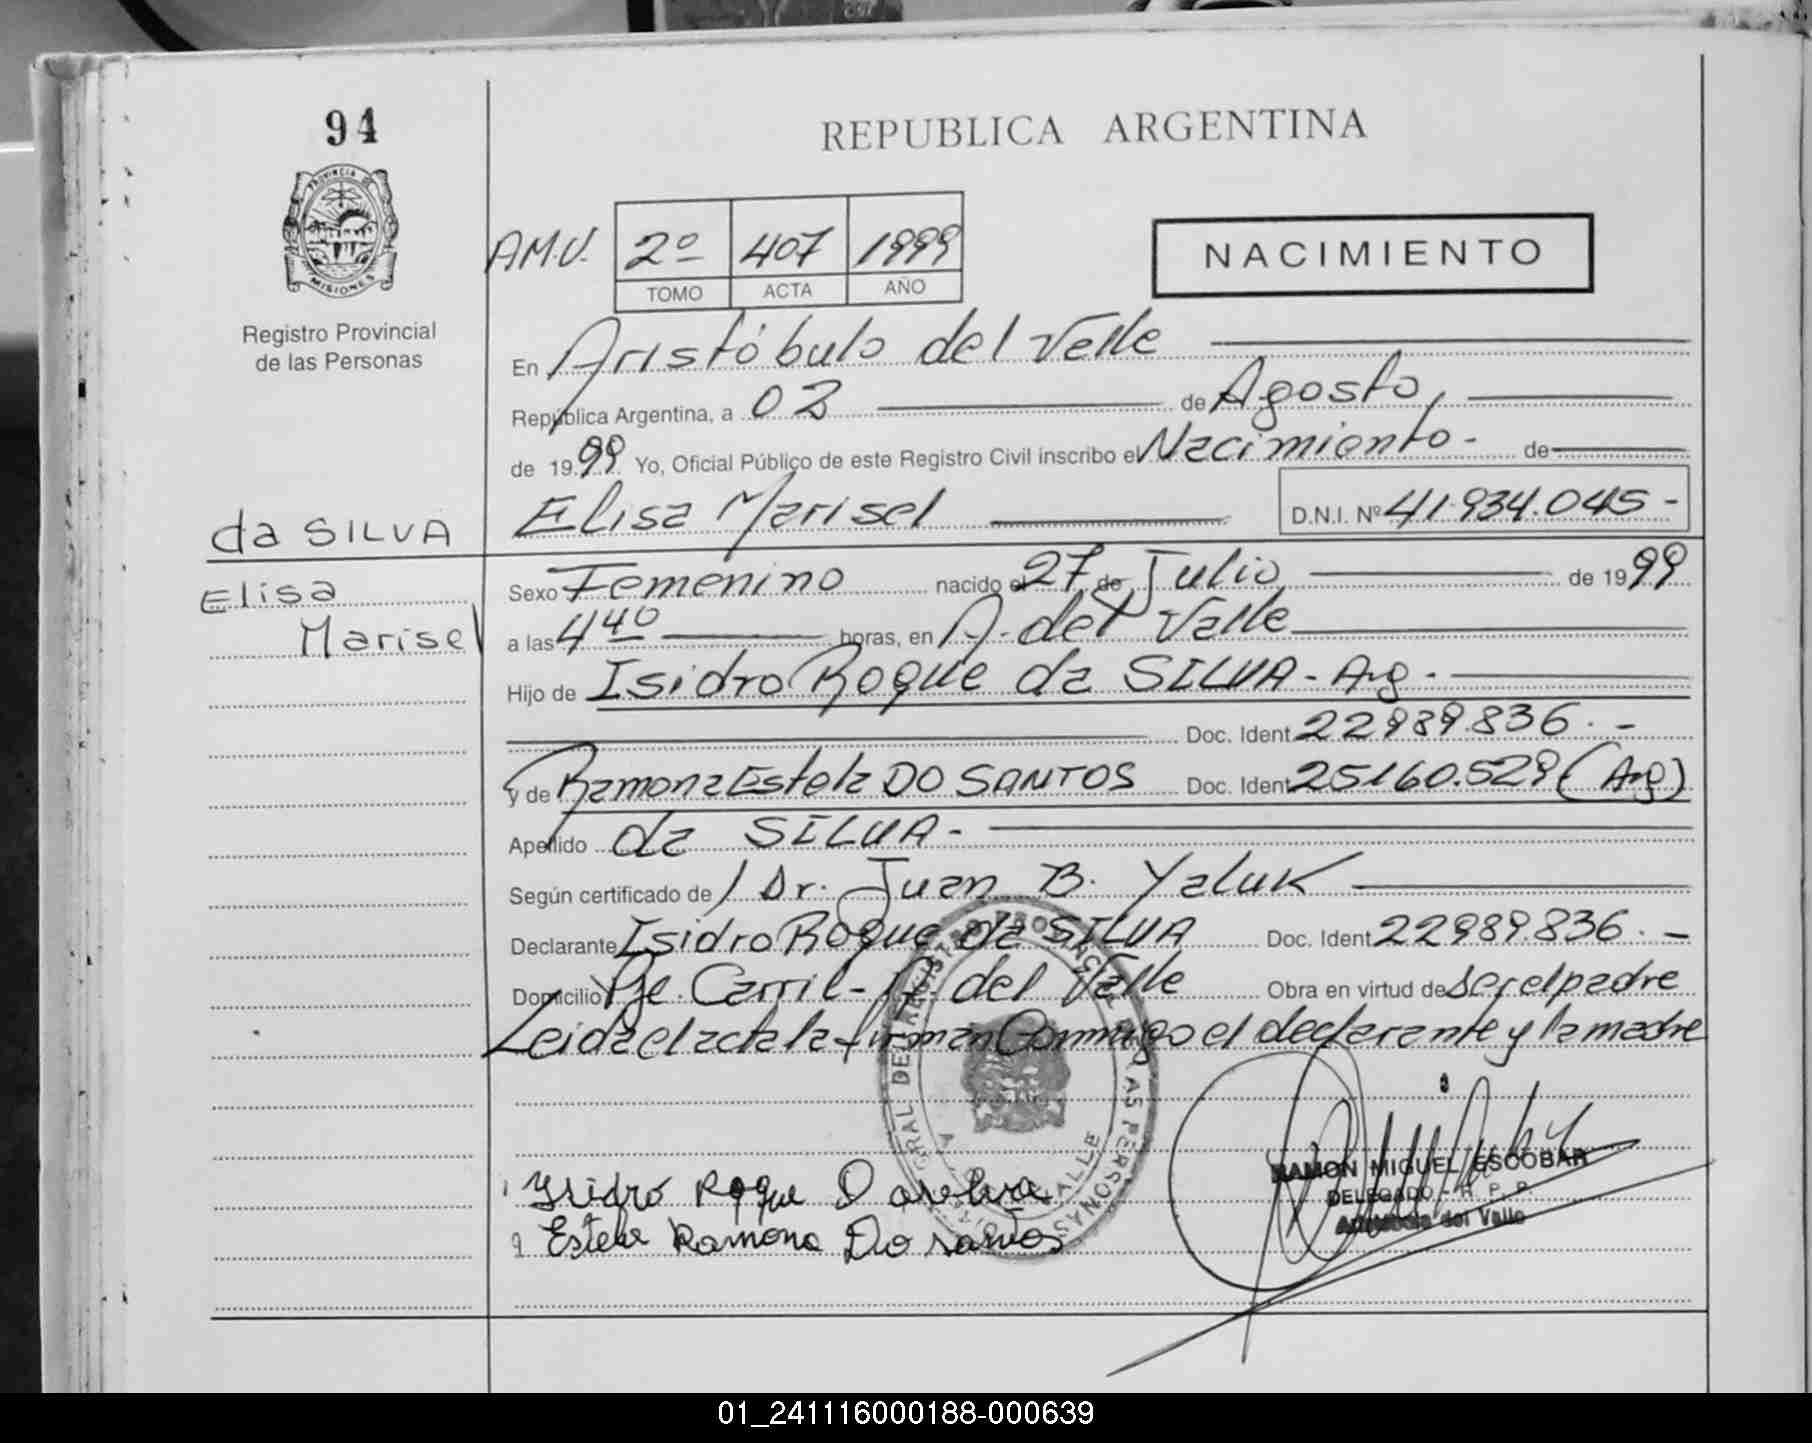 94
REPUBLICA ARGENTINA
PROVINCIA DE
MISIONES
Registro Provincial
de las Personas
A.M.V. 2º 407 1999
TOMO ACTA AÑO
NACIMIENTO
En Aristóbulo del Valle
República Argentina, a 02 de Agosto,
de 1999 Yo, Oficial Público de este Registro Civil inscribo el Nacimiento - de
da SILVA
Elisa Marisel D.N.I. Nº 41.934.045 -
Elisa
Marisel
Sexo Femenino nacido el 27 de Julio de 1999
a las 4 40 horas, en A. del Valle
Hijo de Isidro Roque da SILVA - Arg -
Doc. Ident. 22.989.836. -
y de Ramona Estela DO SANTOS Doc. Ident. 25160.529 (Arg)
Apellido da SILVA -
Según certificado de / Dr. Juan B. Yaluk
Declarante Isidro Roque da SILVA Doc. Ident. 22989.836. -
Domicilio Pje. Carril - A. del Valle Obra en virtud de ser el padre
Leida el acta la firman Conmigo el declarante y la madre
RAMON MIGUEL ESCOBAR
DELEGADO - R. P. P.
Aristobulo del Valle
Isidro Roque Daselva
Estela Ramona Do santos
01_241116000188-000639